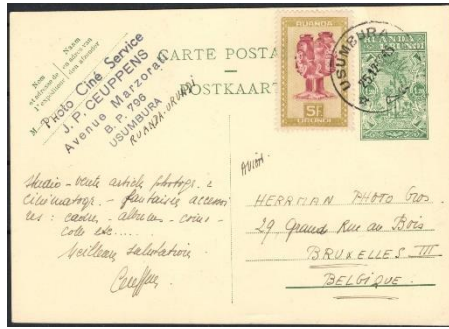 Nom
et adresse de
l'expéditeur
Naam
en adres van
den afzender
M
Photo Ciné Service
J. P. CEUPPENS
Avenue Marzorati
B. P. 796
USUMBURA
RUANDA-URUNDI
CARTE POSTA
POSTKAART
RUANDA
5F
URUNDI
USUMBURA
RUANDA
URUNDI
Avion.
Studio - vente article photogr. &
cinématogr. - fantaisie accessoi
res : cadre, albums - coins -
colle etc.....
Meilleures salutations
HERRMAN PHOTO Gros.
29 Grande Rue au Bois
BRUXELLES III
BELGIQUE.